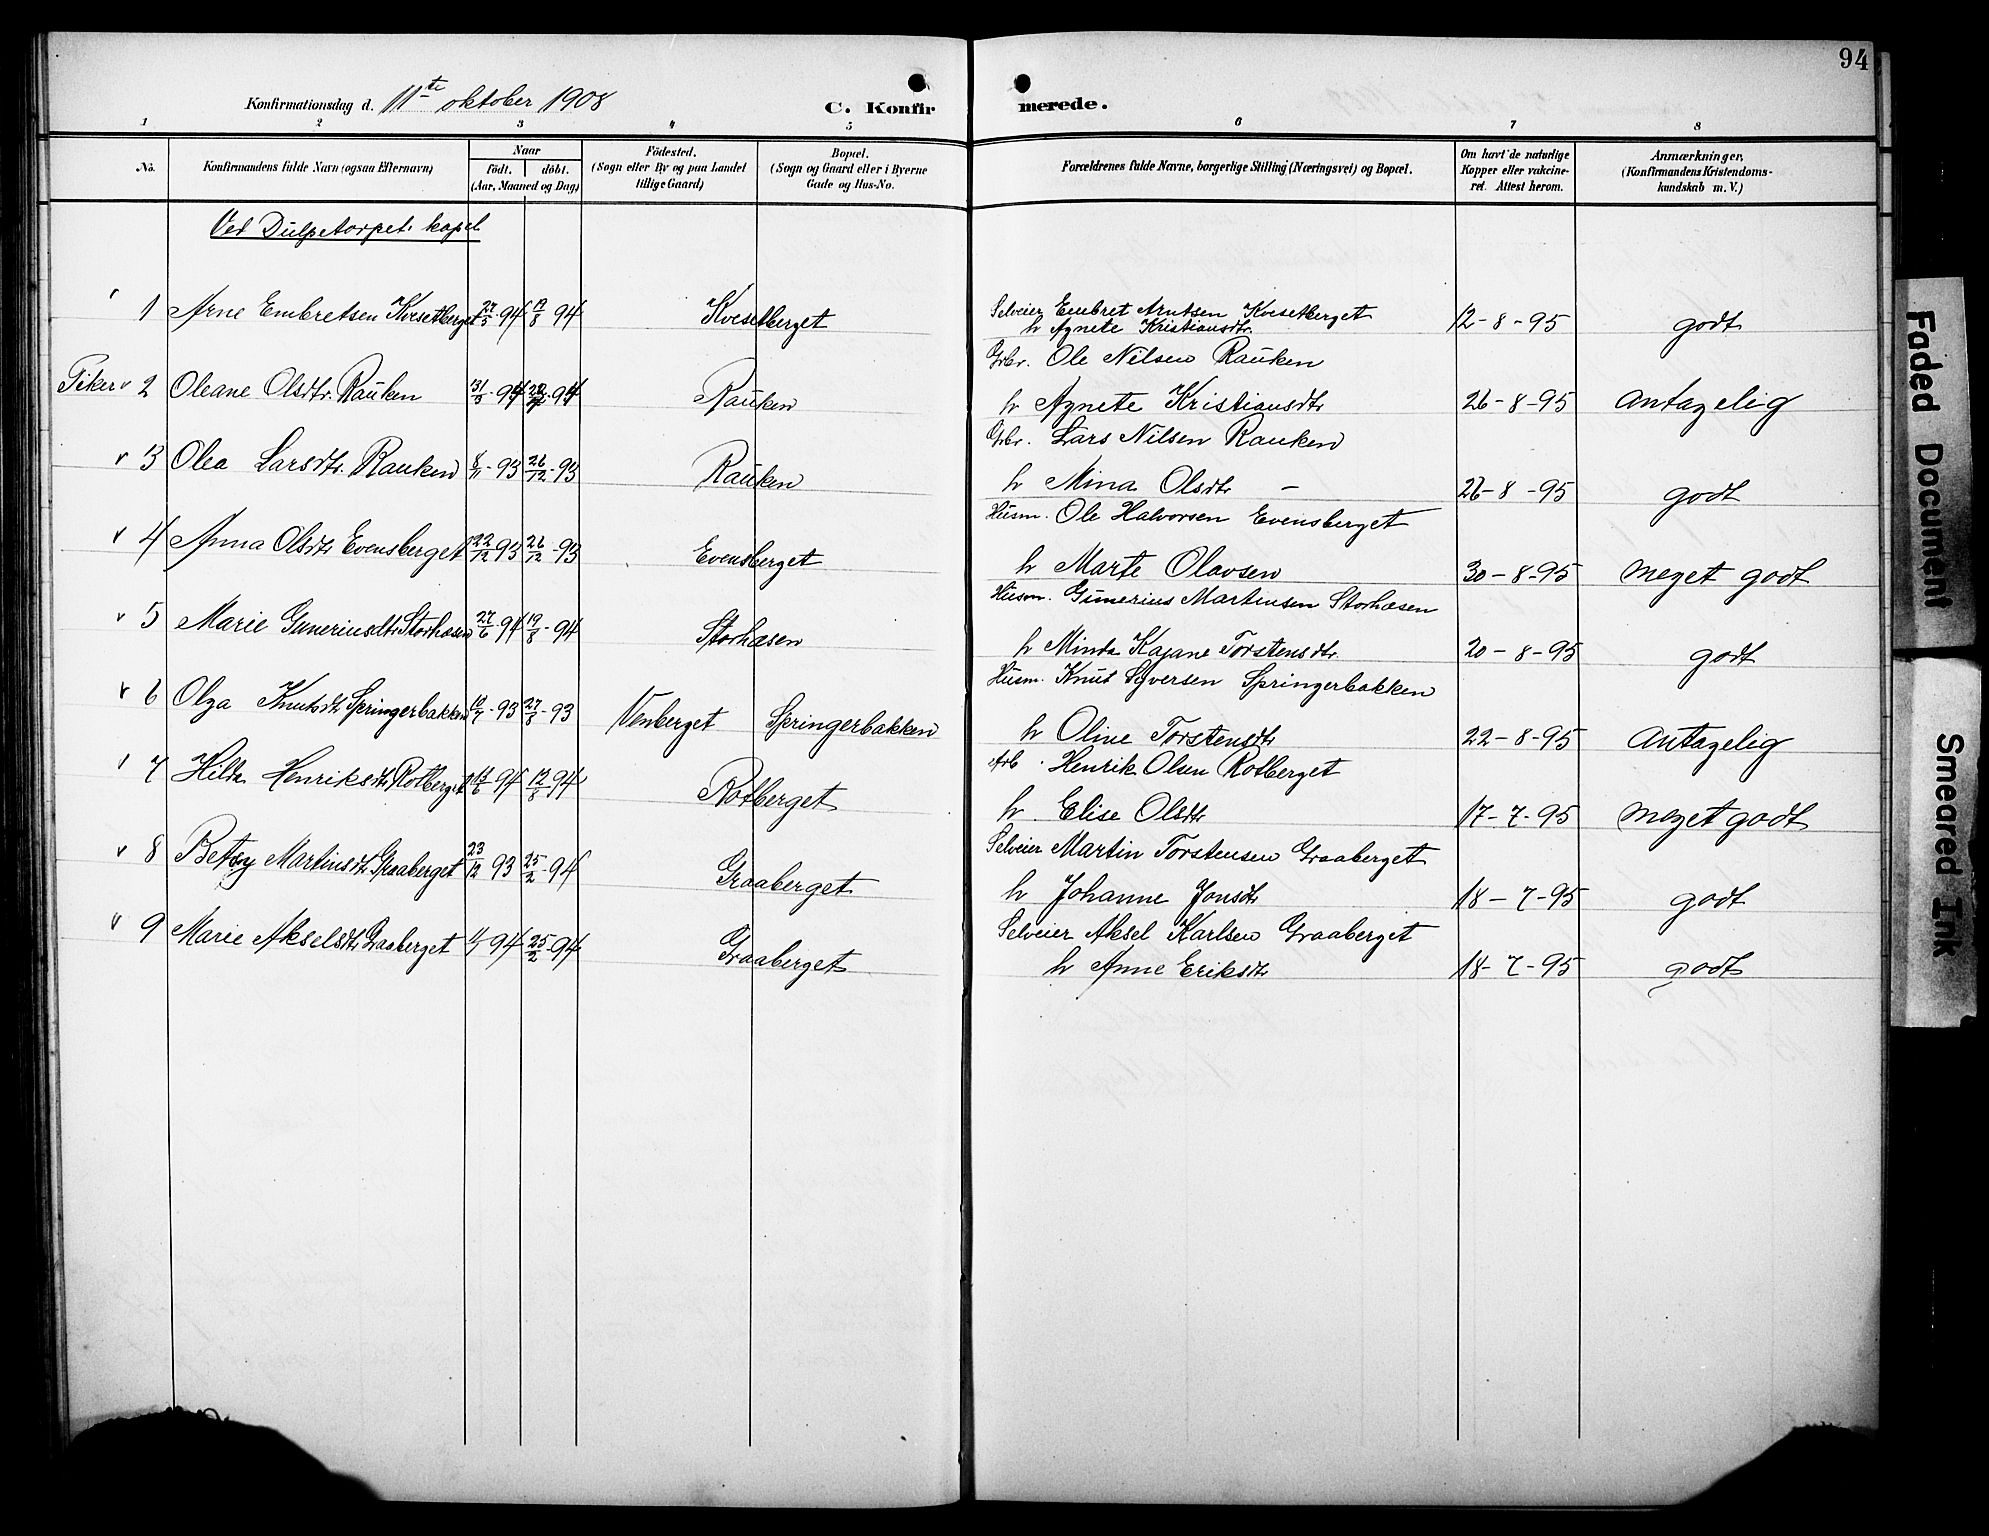 94
Konfirmationsdag d. 11te oktober 1908
C. Konfirmerede.
1 2 3 4 5 6 7 8
No. Konfirmandens fulde Navn (ogsaa Efternavn) Naar født. døbt. (Aar, Maaned og Dag) Fødested. (Sogn eller By og paa Landet tillige Gaard) Bopæl. (Sogn og Gaard eller i Byerne Gade og Hus-No. Forældrenes fulde Navne, borgerlige Stilling (Næringsvei) og Bopæl. Om havt de naturlige Kopper eller vakcineret. Attest herom. Anmærkninger, (Konfirmandens Kristendomskundskab m. V.)
Ved Dulpetorpet kapel
1 Arne Embretsen Kvesetberget 27/5-94 19/8 94 Kvesetberget Selveier Embret Arntsen Kvesetberget
h Agnete Kristiansdtr. 12-8-95 godt
Gbr. Ole Nilsen Rauken
Piker v 2 Oleane Olsdtr. Rauken 31/3-94 -94 Rauken h Agnete Kristiansdtr 26-8-95 Antagelig
Gbr. Lars Nilsen Rauken
v 3 Olea Larsdtr. Rauken 8/11-93 26/12-93 Rauken h Mina Olsdtr - 26-8-95 godt
Husm. Ole Halvorsen Evensberget
v 4 Anna Olsdtr Evensberget 22/12 93 26/12-93 Evensberget h Marte Olavsen 30-8-95 meget godt
Husm. Gunerius Martinsen Storhæsen
v 5 Marie Guneriusdtr Storhæsen 27/6-94 19/8-94 Storhæsen h Minda Kajane Torstensdtr. 20-8-95 godt
Husm. Knut Syversen Springerbakken
v 6 Olga Knutsdtr Springerbakken 12/7-93 27/8-93 Venberget Springerbakken h Oline Torstensdtr 22-8-95 Antagelig
Arb. Henrik Olsen Rotberget
v 7 Hilda Henriksdtr Rotberget 94 19/8-94 Rotberget h. Elise Olsdtr 17-7-95 meget godt
Selveier Martin Torstensen Graaberget
v 8 Betsy Martinsdtr Graaberget 23/12 93 25/2-94 Graaberget h Johanne Jonsdtr 18-7-95 godt
Selveier Aksel Karlsen Graaberget
v 9 Marie Akselsdtr Graaberget 94 25/2-94 Graaberget h Anne Eriksdtr 18-7-95 godt
Faded Document
Smeared Ink